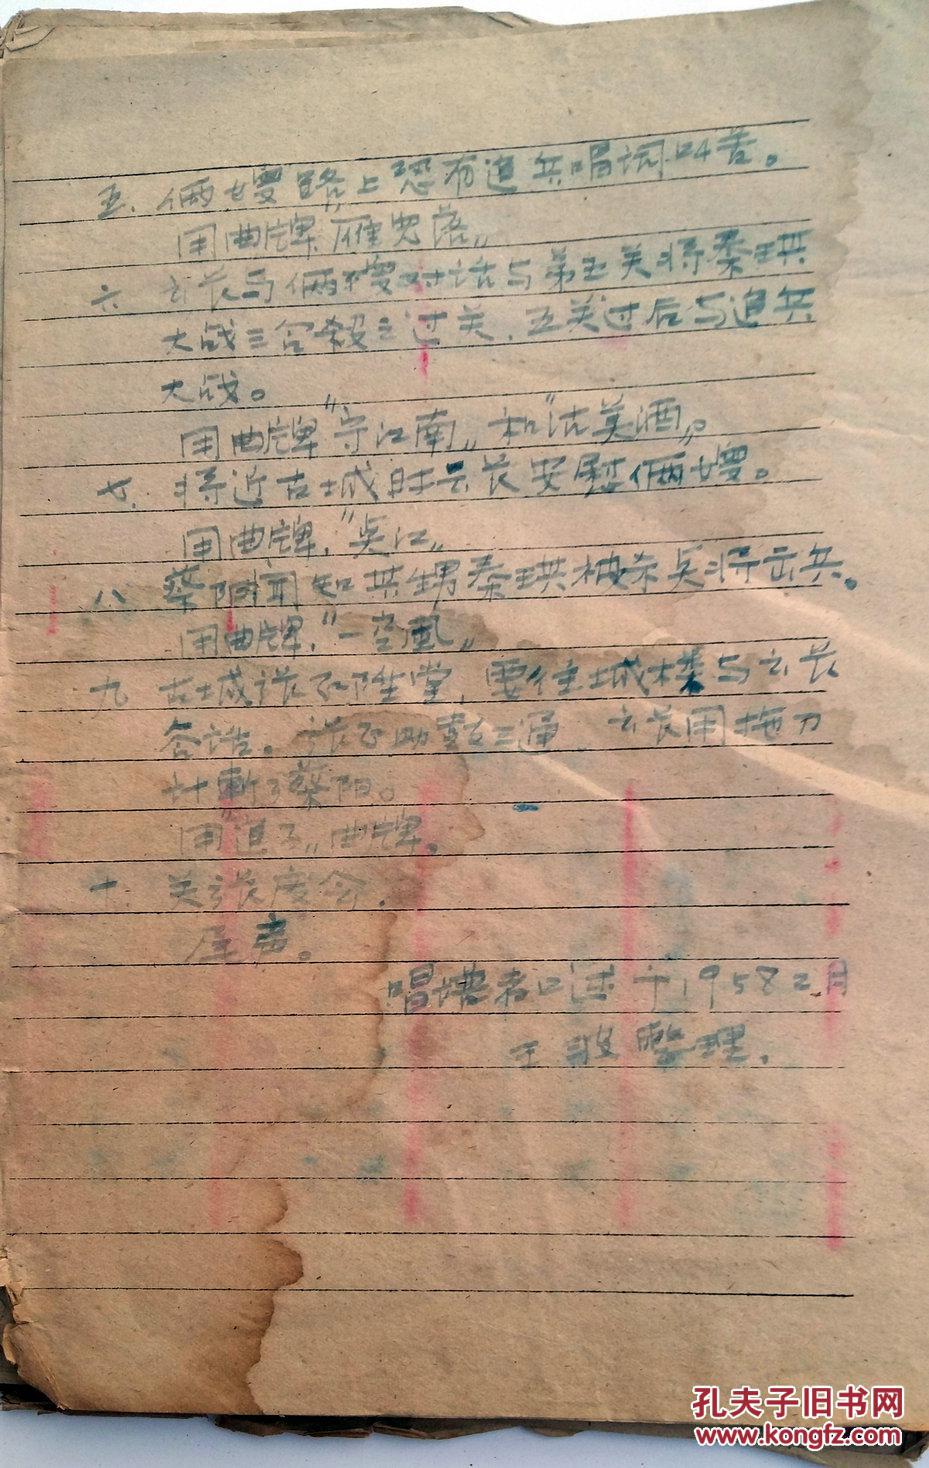 五、俩嫂路上恐有追兵唱词叫苦。
用曲牌"雁儿落"
六 云长与俩嫂对话与第五关将秦琪
大战三合殺之过关，五关过后与追兵
大战。
用曲牌"守江南"和"沽美酒"。
七、将近古城时云长安慰俩嫂。
用曲牌，"吴江"
八 蔡阳闻知其甥秦琪被杀 将 兵。
用曲牌，"一空風"
九 古城张 陞堂，要往城楼与云长
答话。张 助鼓三通 云长用拖刀
计斬了蔡阳。
用 曲牌。
十、关张 会，
尾声。
唱 者口述于1958 2月
王 整理.
孔夫子旧书网
www.kongfz.com